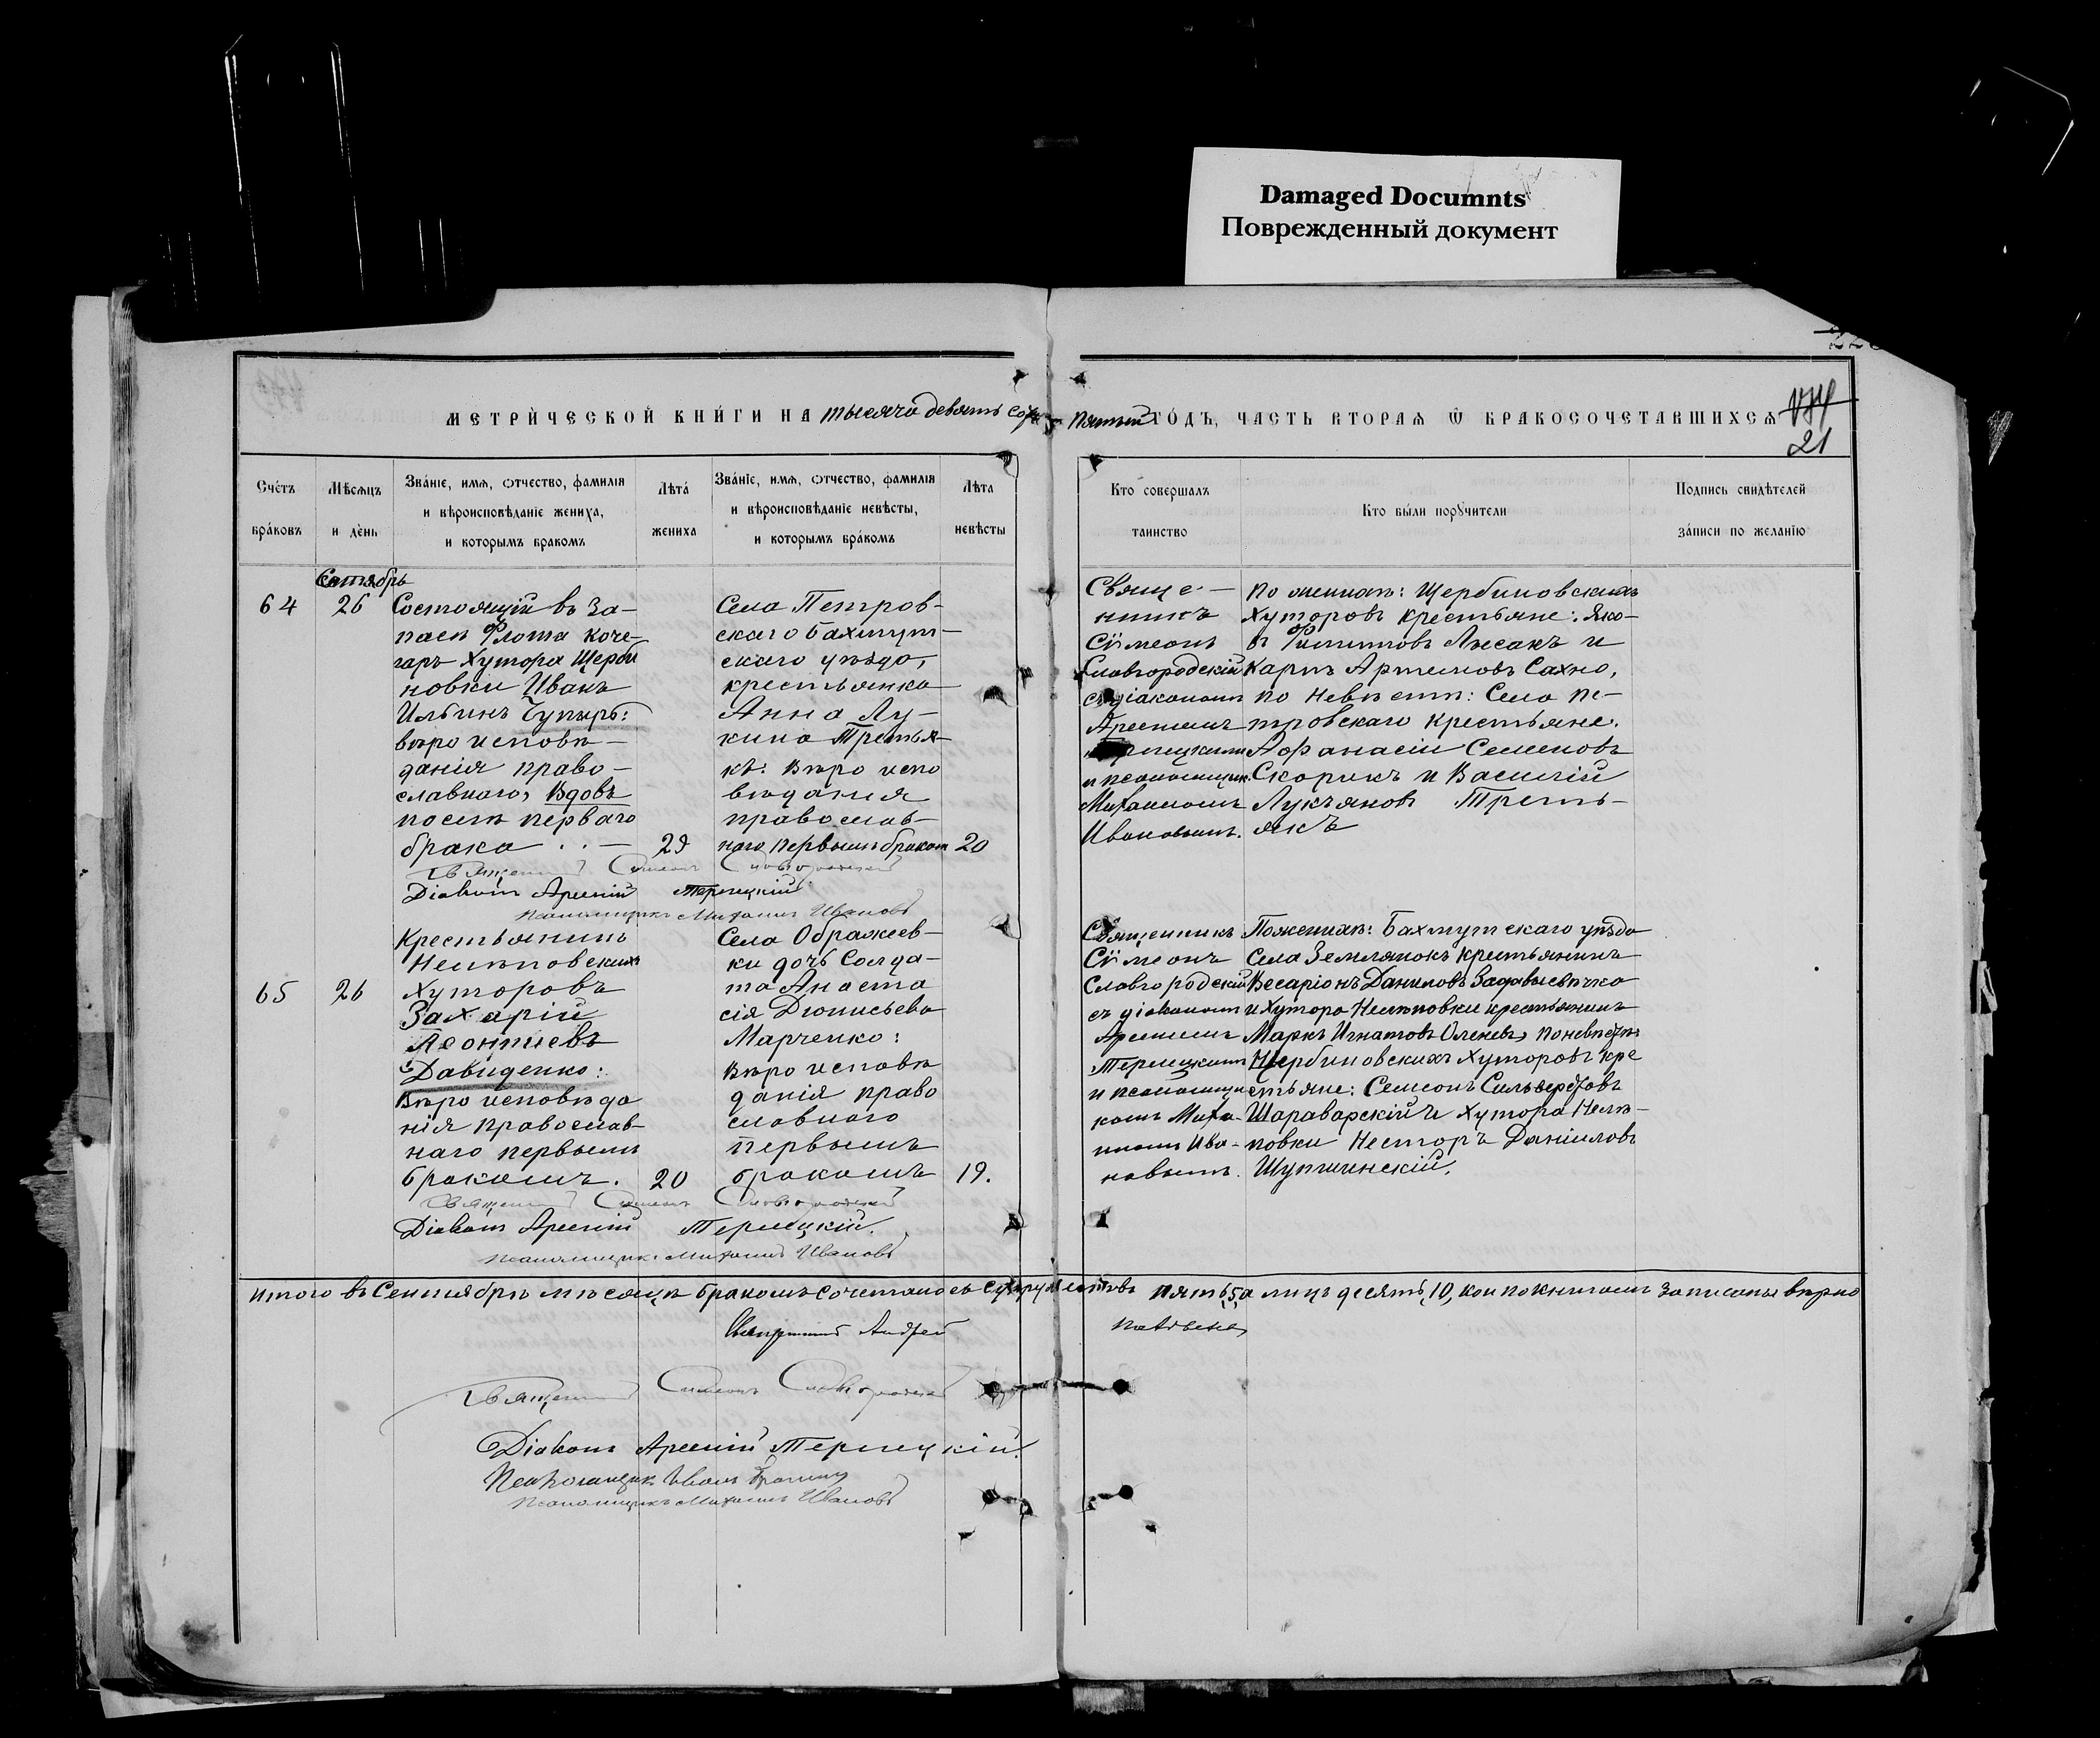 Damaged Documnts
Поврежденный документ
МЕТРИ́ЧЕСКОЙ КНИ́ГИ НА тысяча девять сотъ
пятый ГО́ДЪ, ЧАСТЬ ВТОРАѦ Ѿ БРАКОСОЧЕТАВШИХСѦ
21
Сче́тъ
бра́ковъ
Мѣ́сѧцъ
и де́нь
Зва́нїе, имѧ, ѻтчество, фамилїѧ
и вѣроисповѣ́данїе жениха,
и которымъ бракомъ
Лѣта́
жениха
Зва́нїе, имѧ, ѻтчество, фамилїѧ
и вѣроисповѣ́данїе невѣ́сты,
и которымъ бра́комъ
Лѣта
невѣ́сты
Кто совершалъ
таинство
Кто были порꙋчители
Подпись свидѣтелей
за́писи по желанїю
Сентябрь
64
26
Состоящій въ за-
пасѣ Флота коче-
гаръ Хутора Щерби
новки Иванъ
Ильинъ Чупырь:
вѣроисповѣ-
данія право-
славнаго, Вдовъ
послѣ перваго
брака
29
Села Петров-
скаго Бахмут-
скаго уѣзда,
крестьянка
Анна Лу-
кина Третья-
къ: Вѣро испо
вѣданія
православ-
наго первымъ бракомъ
20
Свяще-
нникъ
Сѵмеонъ
Славгородскій
съ діакономъ
Арсеніемъ
и псаломщик.
Михаиломъ
Ивановымъ.
По женихѣ: Щербиновскихъ
Хуторовъ крестьяне: Яко-
въ Филиповъ Лысакъ и
Карпъ Артемовъ Сахно,
по невѣстѣ: Села Пе-
тровскаго крестьяне.
Афанасій Семеновъ
Скорикъ и Василій
Лукьяновъ Треть-
якъ
Священникъ Симеонъ Славгородскій
Діаконъ Арсеній Терлецкій
Псаломщикъ Михаилъ Ивановъ
65
26
Крестьянинъ
Нелѣповскихъ
Хуторовъ
Захарій
Леонтиевъ
Давиденко:
Вѣро исповѣда
нія православ-
наго первымъ
бракомъ.
20
Села Ображеев-
ки дочь Солда-
та Анаста
сія Дионисьева
Марченко:
Вѣро исповѣ
данія право
славнаго
первымъ
бракомъ
19.
Священникъ
Сѵмеонъ
Славгородскій
съ діакономъ
Арсеніемъ
Терлецкимъ
и псаломщи
комъ Миха-
иломъ Ива-
новымъ.
По женихѣ: Бахмутскаго уѣзда
Села Землянокъ крестьянинъ
Весаріонъ Даниловъ Задавысвѣчка
и Хутора Нелѣповки крестьянинъ
Маркъ Игнатовъ Оленевъ, по невѣстѣ:
Щербиновскихъ Хуторовъ кре
стьяне: Семеонъ Сильверстовъ
Шараварскій и Хутора Нелѣ-
повки Несторъ Даніиловъ
Священникъ Симеонъ Славгородскій
Діаконъ Арсеній Терлецкій.
Псаломщикъ Михаилъ Ивановъ
Итого въ Сентябрѣ мѣсяцѣ бракомъ сочеталось супружествъ пять, 5, а лицъ десять, 10, кои по книгамъ записаны вѣрно
Священникъ Андрей
Священникъ Симеонъ Славгородскій
Діаконъ Арсеній Терлецкій.
Псаломщикъ Иванъ
Псаломщикъ Михаилъ Ивановъ